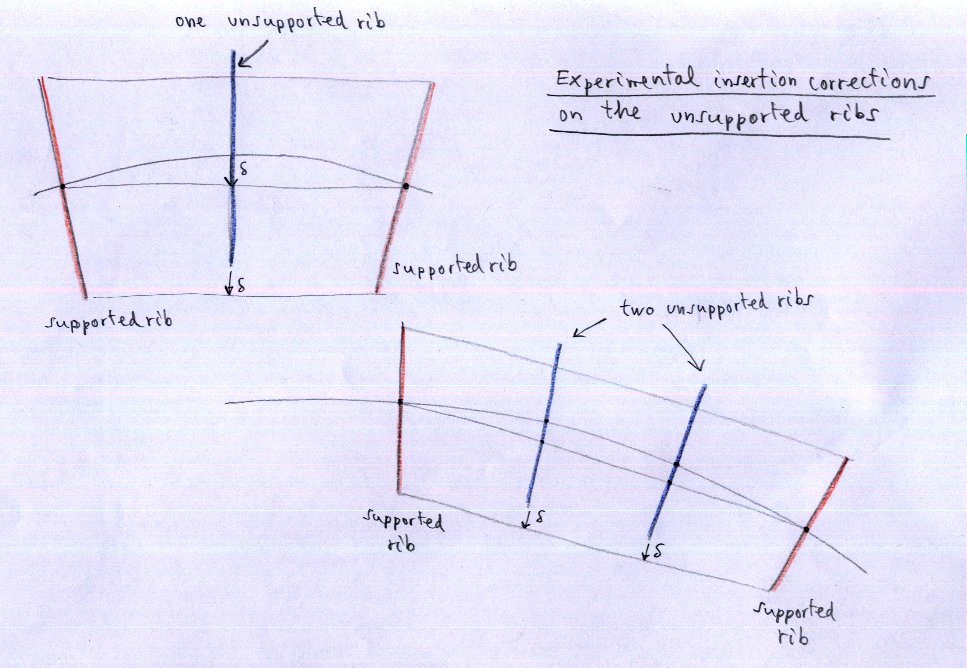 one unsupported rib
Experimental insertion corrections
on the unsupported ribs
δ
δ
supported rib
supported rib
two unsupported ribs
δ
δ
supported
rib
supported
rib